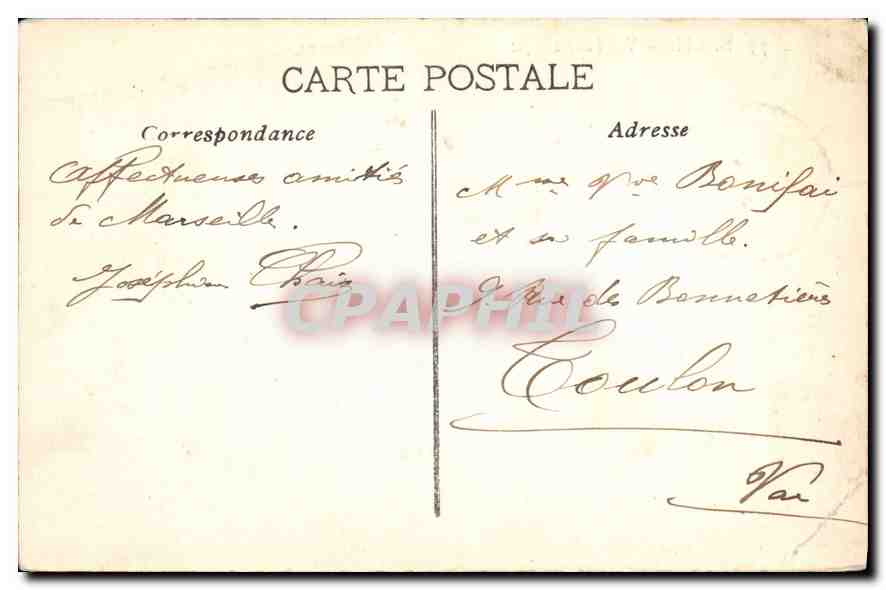 CARTE POSTALE
Correspondance
Affectueuses amitiés
de Marseille.
Joséphine
Adresse
Mme Vve Bonifai
et sa famille.
Rue des Bonnetières
Toulon
Var
CPAPHIL